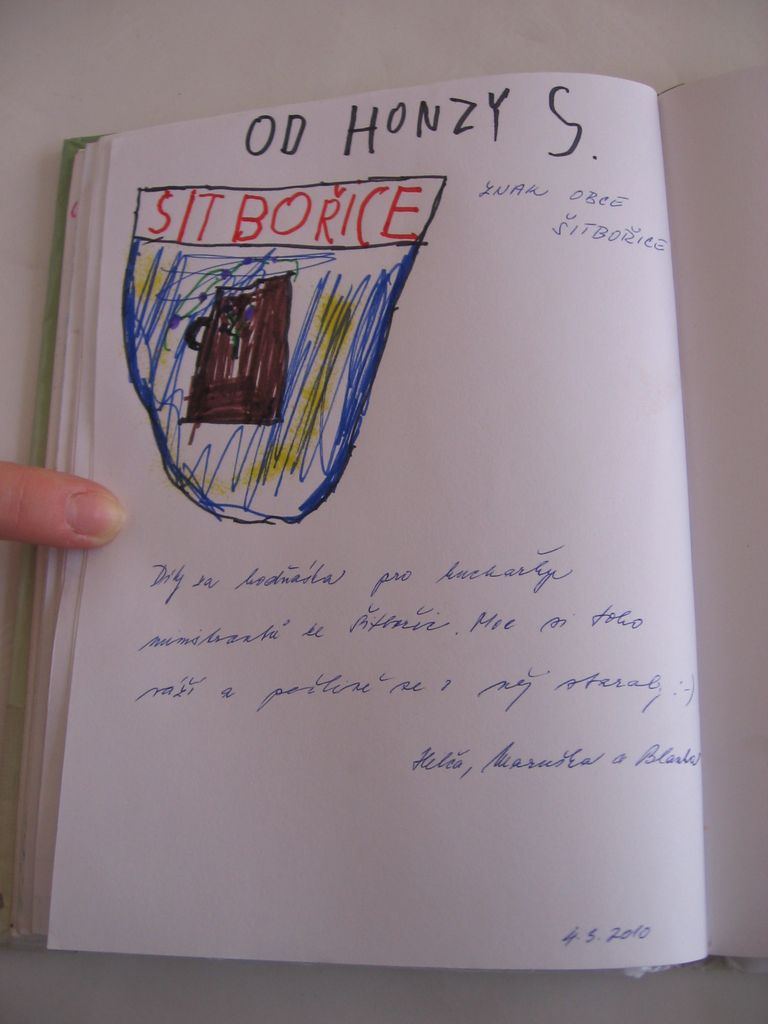 OD HONZY S.
ŠITBOŘICE
ZNAK OBCE
ŠITBOŘICE
Díky za hodňáska pro kuchařky
ministrantů ze Šitbořic. Moc si toho
váží a pečlivě se o něj staraly :-)
Helča, Maruška a Blanka
4.3.2010